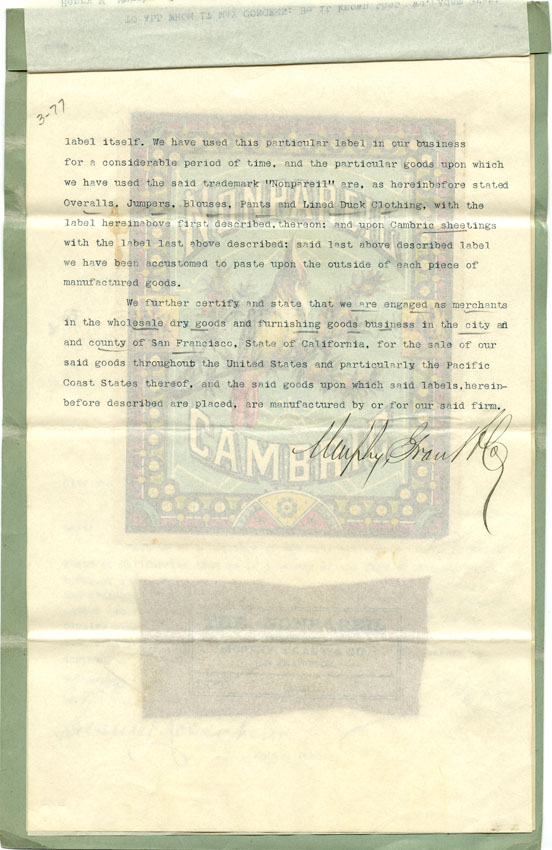 TO ALL WHOM IT MAY CONCERN: Be it known that
3-77
label itself. We have used this particular label in our business
for a considerable period of time, and the particular goods upon which
we have used the said trademark "Nonpareil" are, as hereinbefore stated
Overalls, Jumpers, Blouses, Pants and Lined Duck Clothing, with the
label hereinabove first described, thereon; and upon Cambric sheetings
with the label last above described; said last above described label
we have been accustomed to paste upon the outside of each piece of
manufactured goods.
We further certify and state that we are engaged as merchants
in the wholesale dry goods and furnishing goods business in the city an
and county of San Francisco, State of California, for the sale of our
said goods throughout the United States and particularly the Pacific
Coast States thereof, and the said goods upon which said labels, herein-
before described are placed, are manufactured by or for our said firm.
Murphy, Grant & Co
CAMBRIC
THE NONPAREIL